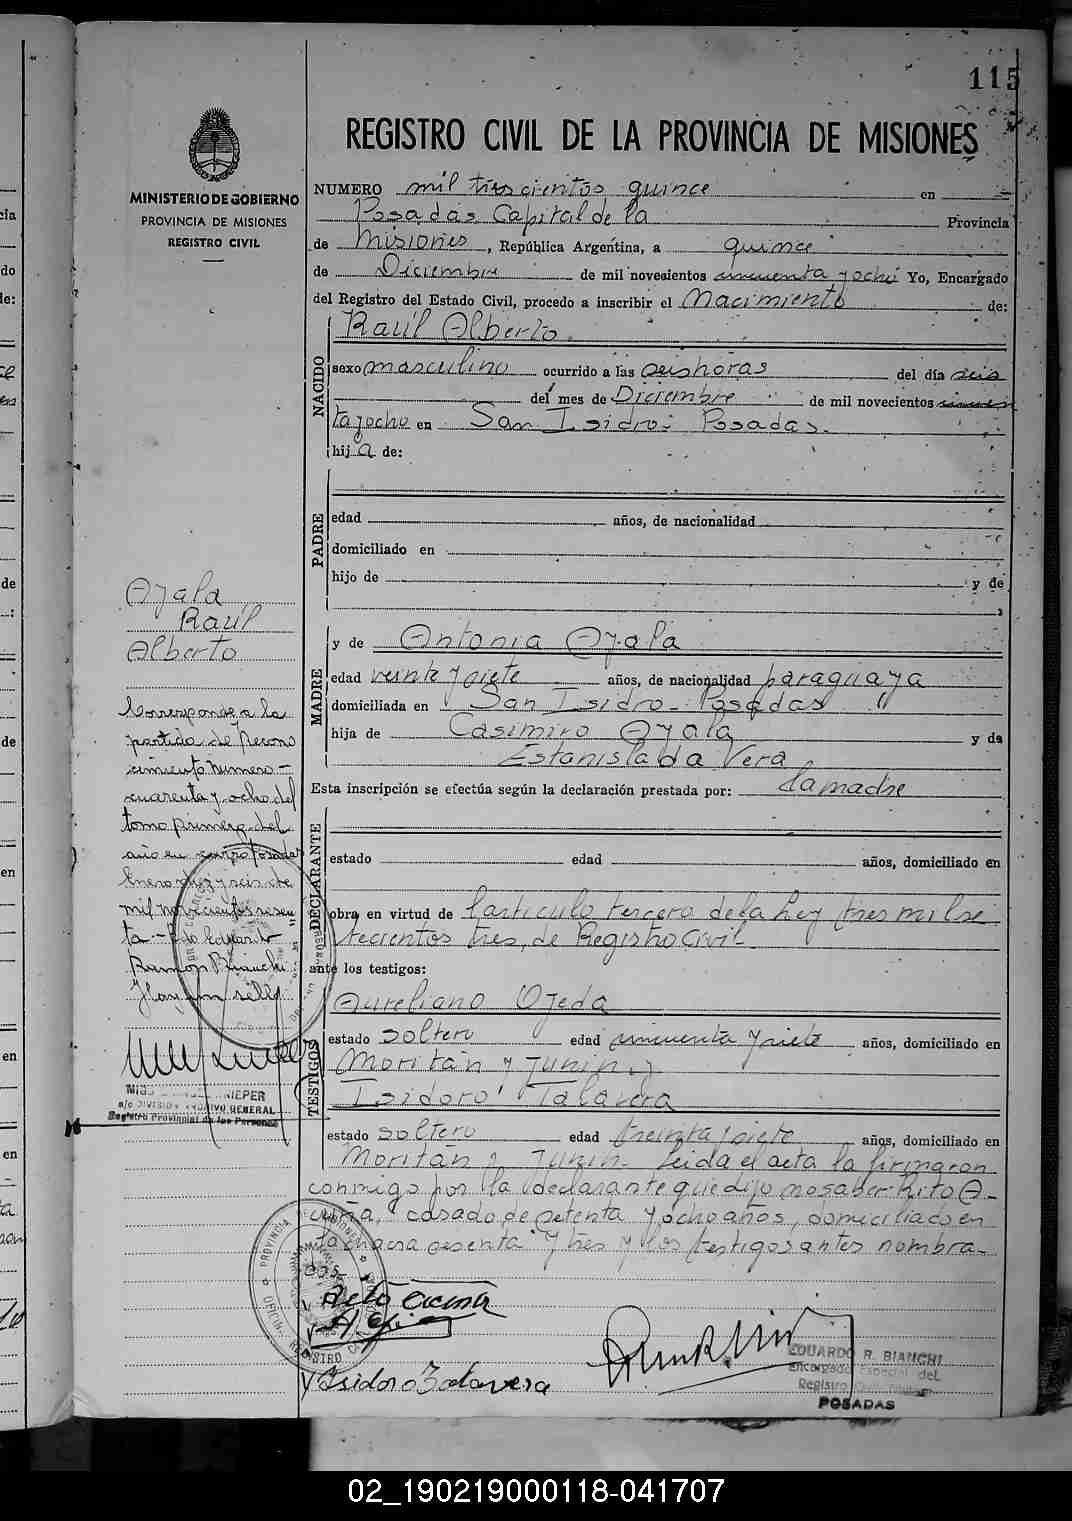 115
REGISTRO CIVIL DE LA PROVINCIA DE MISIONES
MINISTERIO DE GOBIERNO
PROVINCIA DE MISIONES
REGISTRO CIVIL
NUMERO mil trescientos quince en
Posadas Capital de la Provincia
de Misiones, República Argentina, a quince
de Diciembre de mil novecientos cincuenta y ocho Yo, Encargado
del Registro del Estado Civil, procedo a inscribir el Nacimiento de:
NACIDO
Raúl Alberto.
sexo masculino ocurrido a las seis horas del día seis
del mes de Diciembre de mil novecientos cincuen
ta y ocho en San Isidro - Posadas.
hija de:
PADRE
edad años, de nacionalidad
domiciliado en
hijo de y de
MADRE
y de Antonia Ayala
edad veinte y siete años, de nacionalidad paraguaya
domiciliada en San Isidro - Posadas
hija de Casimiro Ayala y de
Estanislada Vera
Esta inscripción se efectúa según la declaración prestada por: la madre
DECLARANTE
estado edad años, domiciliado en
obra en virtud de l'artículo tercero de la Ley tres mil se
tecientos tres, de Registro Civil
ante los testigos:
TESTIGOS
Aureliano Ojeda
estado soltero edad cincuenta y siete años, domiciliado en
Moritán y Junin y
Isidoro Talavera
estado soltero edad treinta y siete años, domiciliado en
Moritán y Junin - Leida el acta la firmaron
conmigo por la declarante que dijo no saber Rito A-
cuña, casado, de setenta y ocho años, domiciliado en
la chacra sesenta y tres y los testigos antes nombra-
dos-
Rito Acuña
Isidoro Talavera
EDUARDO R. BIANCHI
Encargado Especial del
Registro Civil
POSADAS
Ayala
Raúl
Alberto
Corresponde a la
partida de recono
cimiento numero -
cuarenta y ocho del
tomo primero del
año en curso Posadas
Enero diez y seis de
mil novecientos sesen
ta - Fdo Eduardo
Ramon Bianchi
Hay un sello
NIEPER
a/c DIVISION ARCHIVO GENERAL
Registro Provincial de las Personas
02_190219000118-041707